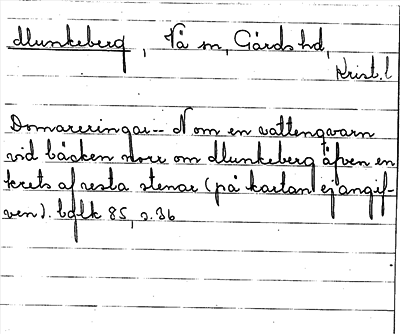 Munkeberg, Vå sn, Gärds hd,
Krist. l
Domareringar -- N om en vattenqvarn
vid bäcken norr om Munkeberg äfven en
krets af resta stenar (på kartan ej angif-
ven). bqlk 85, s. 36